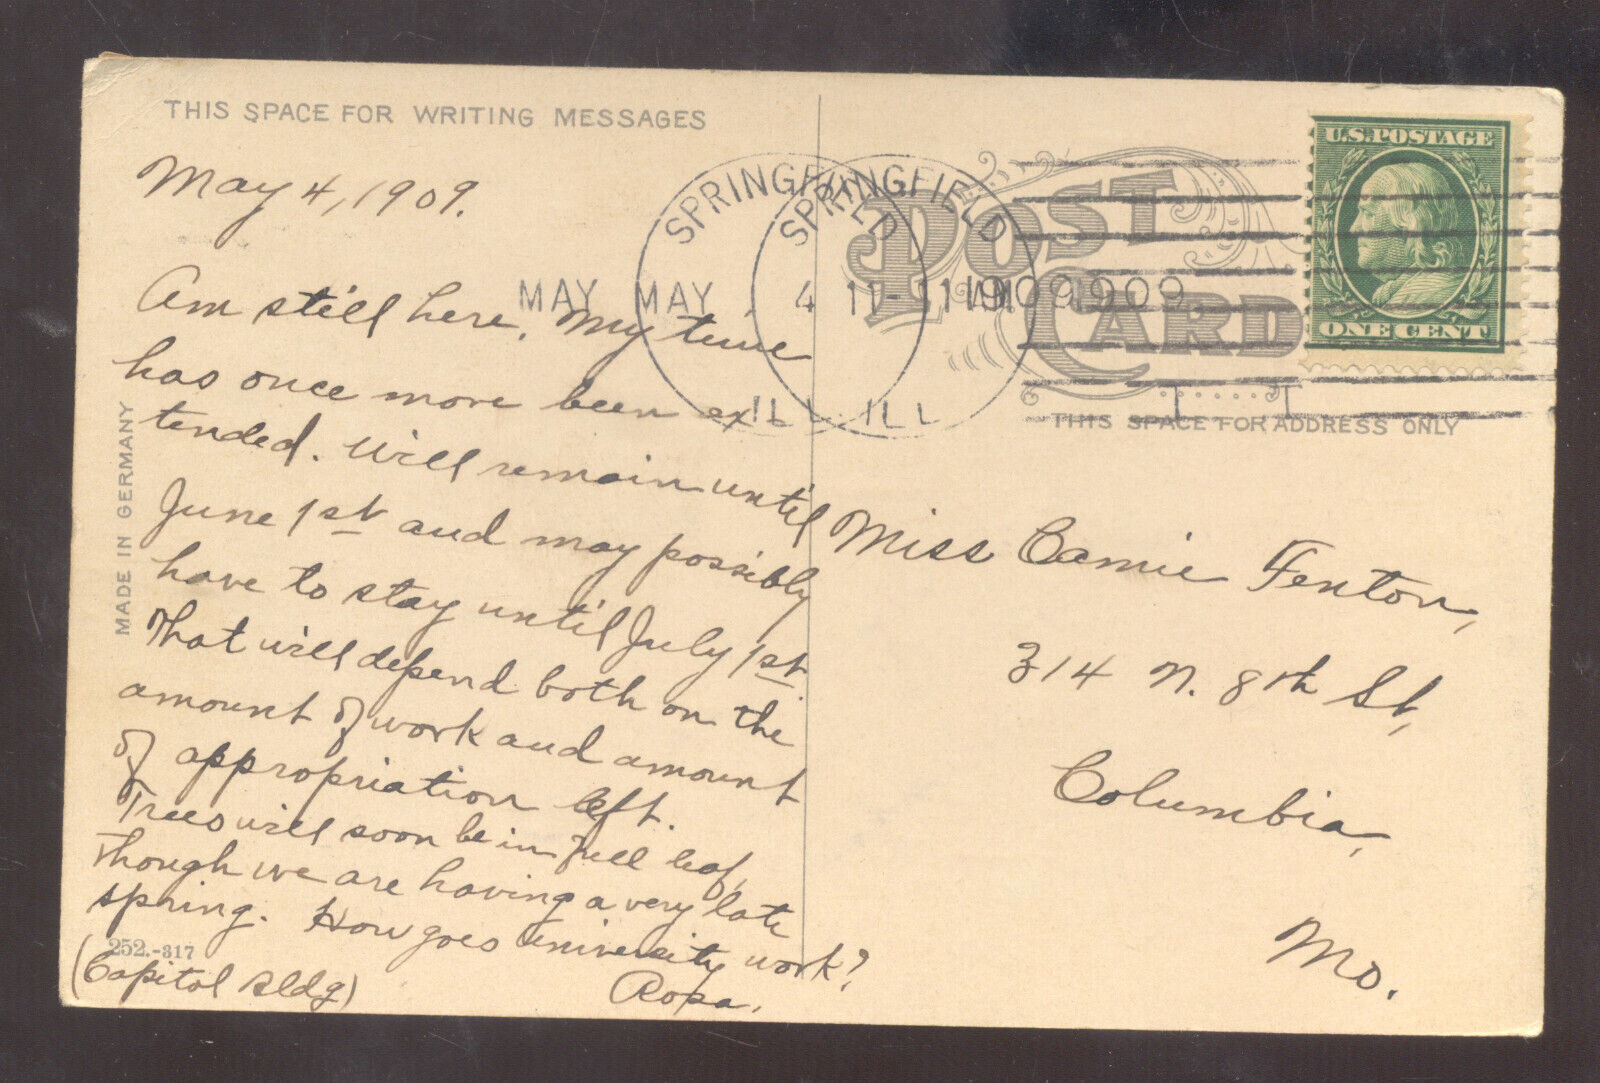 THIS SPACE FOR WRITING MESSAGES
May 4, 1909.
Am still here. My time
has once more been ex
tended. Will remain until
June 1st and may possibly
have to stay until July 1st.
That will depend both on the
amount of work and amount
of appropriation left.
Trees will soon be in full leaf,
though we are having a very late
spring. How goes university work?
(Capitol Bldg)
252.-317
MADE IN GERMANY
SPRINGFIELD
SPRINGFIELD
MAY MAY 4 11- 1909
ILL. ILL
POST CARD
THIS SPACE FOR ADDRESS ONLY
U.S. POSTAGE
ONE CENT
Miss Camie Fenton,
314 N. 8th St,
Columbia,
Mo.